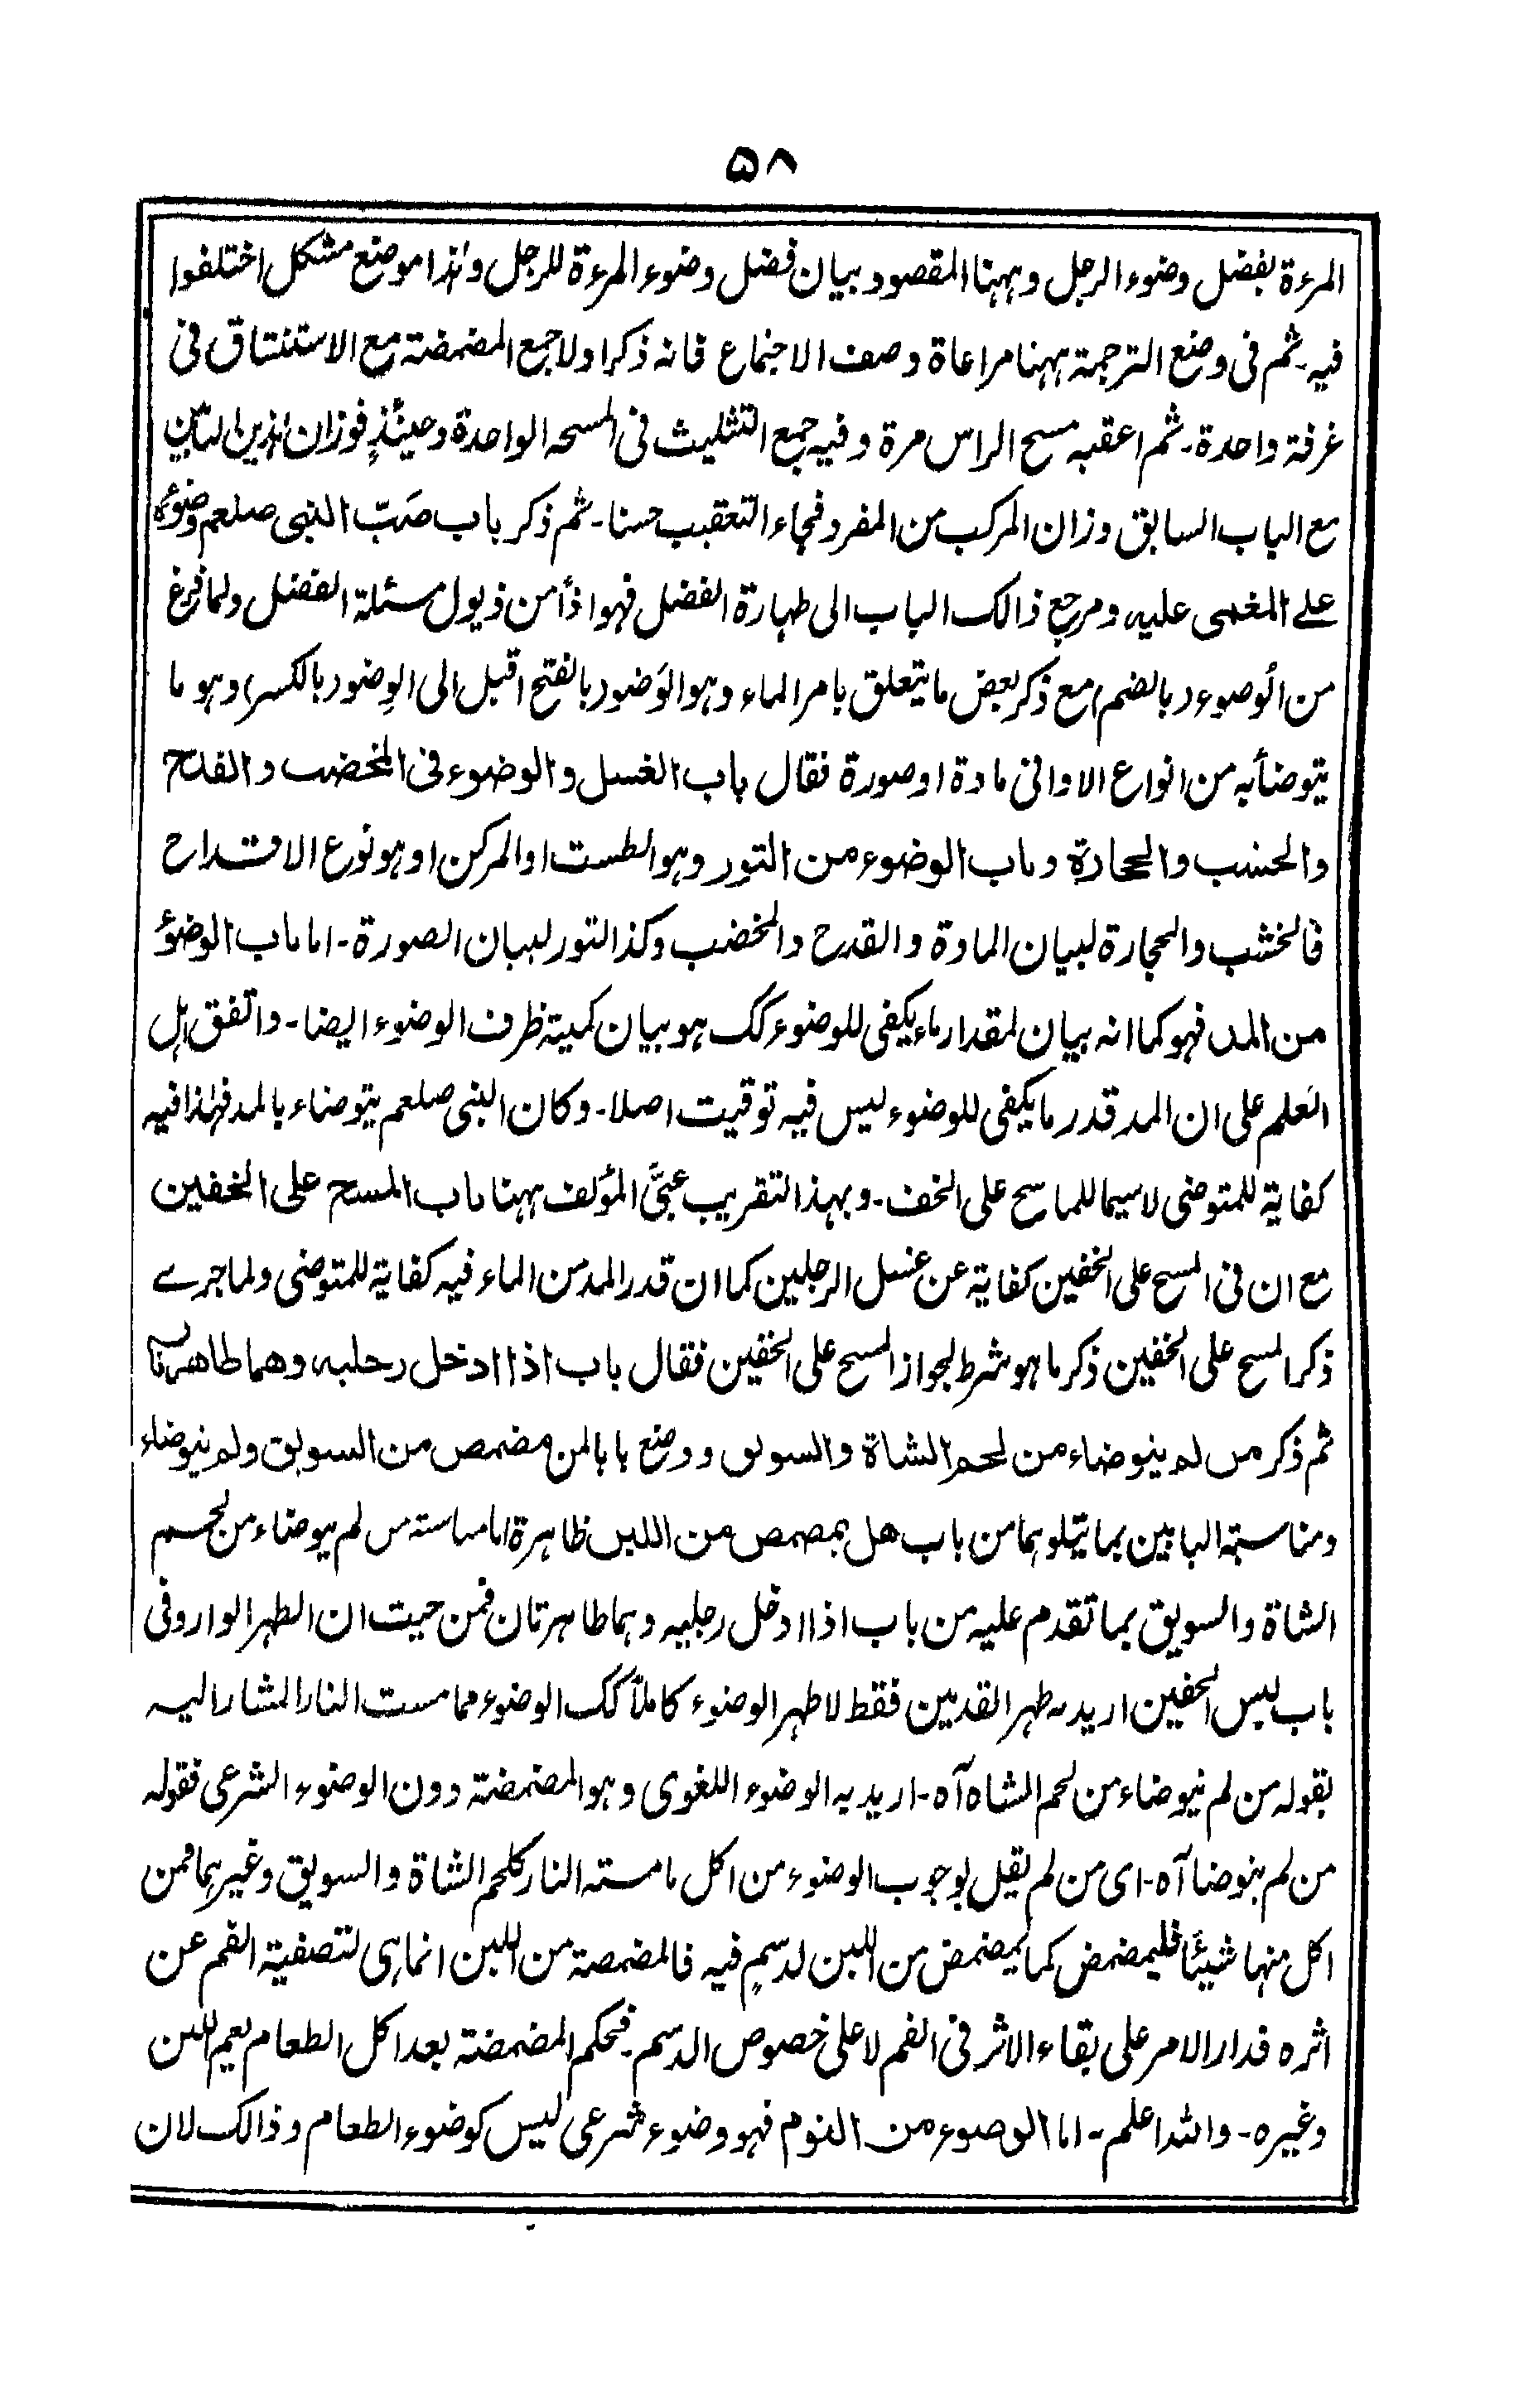 ۵۸
المرءة بفضل وضوء الرجل وههنا المقصود بيان فضل وضوء المرءة للرجل وهذا موضع مشكل اختلفوا
فيه۔ ثم فى وضع الترجمة ههنا مراعاة وصف الاجتماع فانه ذكر اولا جمع المضمضة مع الاستنشاق فى
غرفة واحدة۔ ثم اعقبه مسح الراس مرة وفيه جمع التثليث فى المسحه الواحدة وحينئذٍ فوزان هذين البابين
مع الباب السابق وزان المركب من المفرد فجاء التعقيب حسنا۔ ثم ذكر باب صَبّ النبى صلعم وضوئه
على المغمى عليه ومرجع ذالك الباب الى طهارة الفضل فهو اذاً من ذيول مسئلة الفضل ولما فرغ
من الُوضوء (بالضم) مع ذكر بعض ما يتعلق بامر الماء وهو الوَضوء (بالفتح اقبل الى الوِضوء (بالكسر) وهو ما
يتوضأ به من انواع الاوانى مادة او صورة فقال باب الغسل والوضوء فى المخضب والقدح
والخشب والحجارة وباب الوضوء من التور وهو الطست او المركن او هو نوع الاقتداح
فالخشب والحجارة لبيان المادة والقدح والمخضب وكذا التور لبيان الصورة۔ اما باب الوضؤ
من المد فهو كما انه بيان لمقدار ماء يكفى للوضوء كك هو بيان كمية ظرف الوضوء ايضا۔ واتفق اهل
العلم على ان المد قدر ما يكفى للوضوء ليس فيه توقيت اصلا۔ وكان النبى صلعم يتوضاء بالمد فهذا فيه
كفاية للمتوضى لا سيما للماسح على الخف۔ وبهذا التقريب عبَّى المؤلف ههنا باب المسح على الخفين
مع ان فى المسح على الخفين كفاية عن غسل الرجلين كما ان قدر المد من الماء فيه كفاية للمتوضى ولما جرے
ذكر المسح على الخفين ذكر ما هو شرط لجواز المسح على الخفين فقال باب اذا ادخل رجليه وهما طاهرتان
ثم ذكر من لم يتوضاء من لحم الشاة والسويق ووضع بابا لمن مضمض من السويق ولم يتوضاء
ومناسبة البابين بما يتلوهما من باب هل يمضمض من اللبن ظاهرة اما مناسبته من لم يتوضاء من لحم
الشاة والسويق بما تقدم عليه من باب اذا ادخل رجليه وهما طاهرتان فمن حيث ان الطهر الوارد فى
باب لبس الخفين اريد به طهر القدمين فقط لا طهر الوضوء كاملاً كك الوضوء مما مست النار المشار اليه
بقوله من لم يتوضاء من لحم الشاه آه۔ اريد به الوضوء اللغوى وهو المضمضة دون الوضوء الشرعى فقوله
من لم يتوضا آه۔ اى من لم يقل بوجوب الوضوء من اكل ما مسته النار كلحم الشاة والسويق وغيرهما فمن
اكل منها شيئًا فليمضمض كما يمضمض من اللبن لدسمٍ فيه فالمضمضة من اللبن انما هى لتصفية الفم عن
اثره فدار الامر على بقاء الاثر فى الفم لا على خصوص الدسم۔ فحكم المضمضة بعد اكل الطعام يعم اللبن
وغيره۔ والله اعلم۔ اما الوضوء من النوم فهو وضوء شرعى ليس كوضوء الطعام وذالك لان